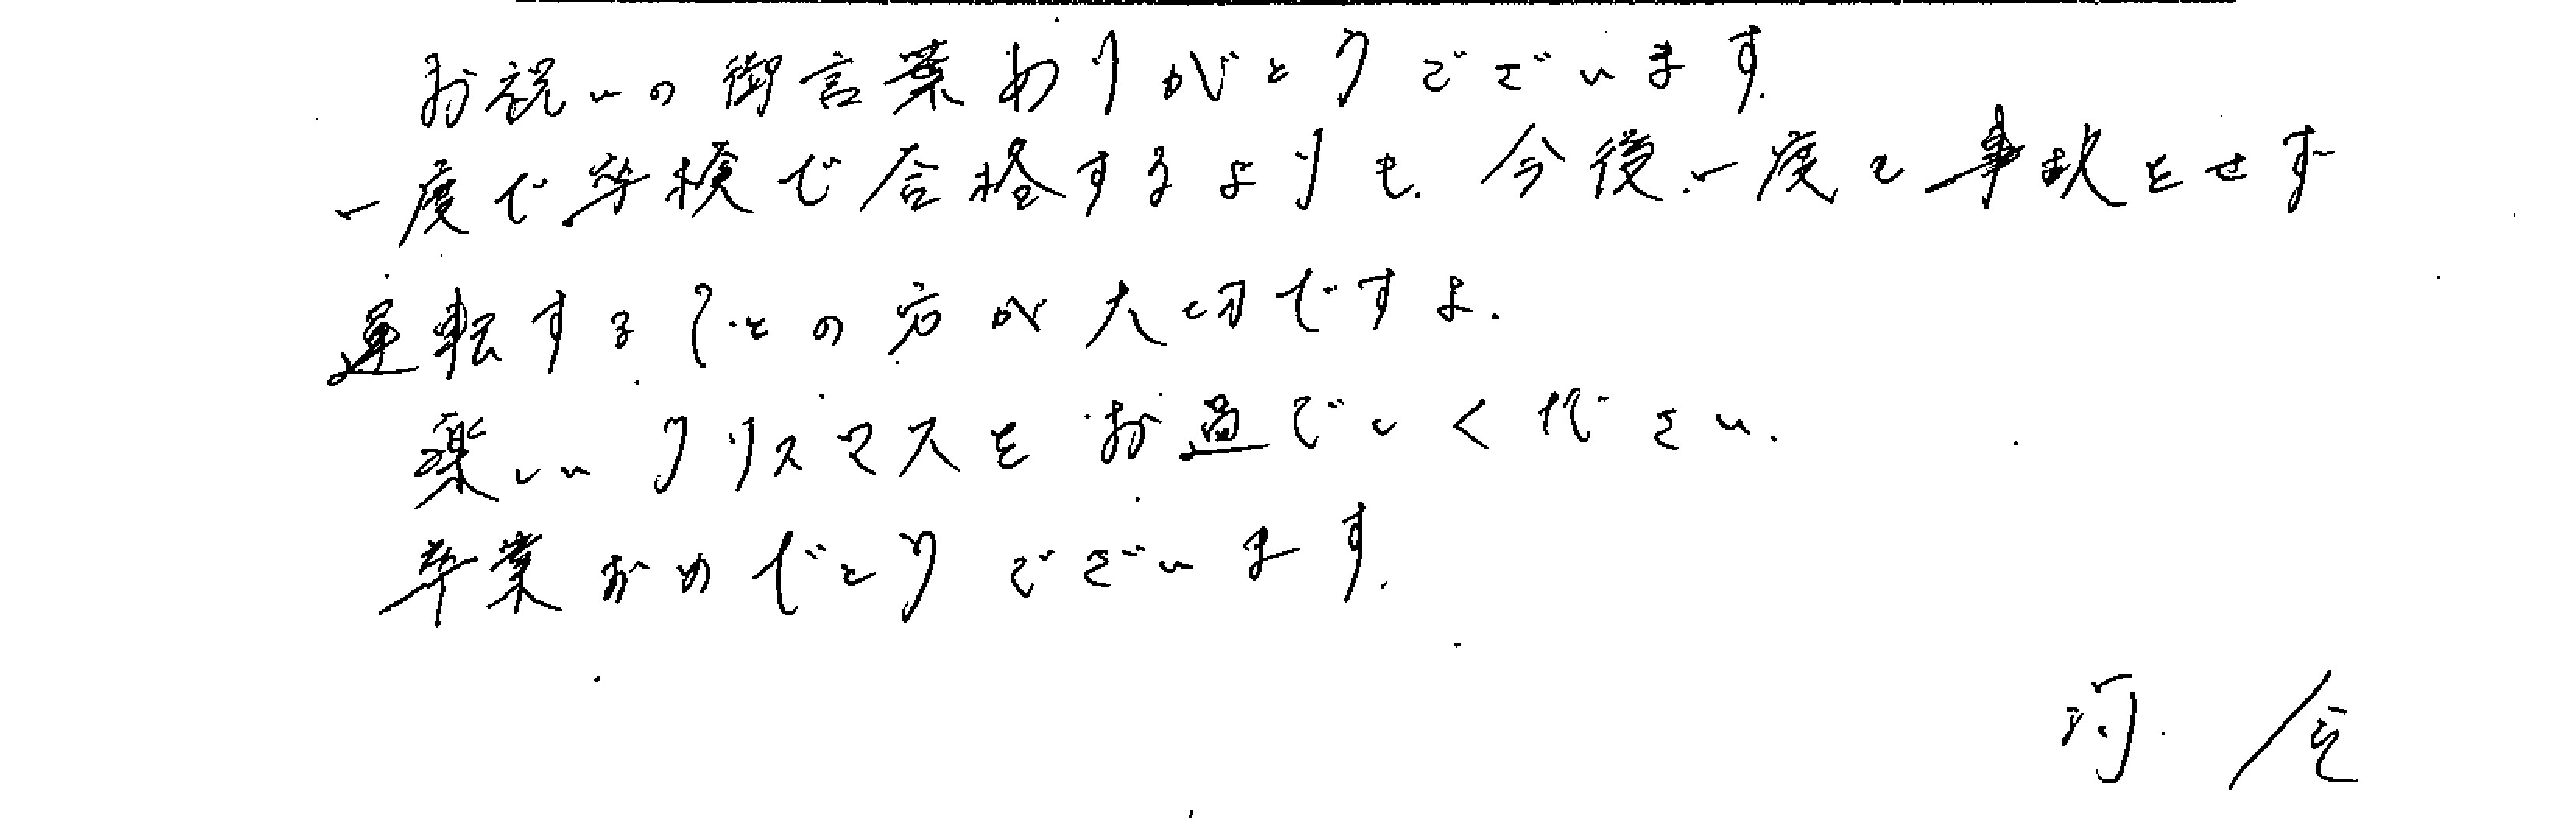 お祝いの御言葉ありがとうございます.
一度で卒検で合格するよりも.今後.一度も事故をせず
運転することの方が大切ですよ.
楽しいクリスマスをお過ごしください.
卒業おめでとうございます.
河合